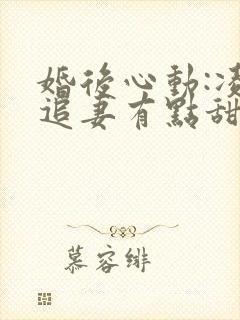 婚後心動:凌
追妻有點甜
慕容緋